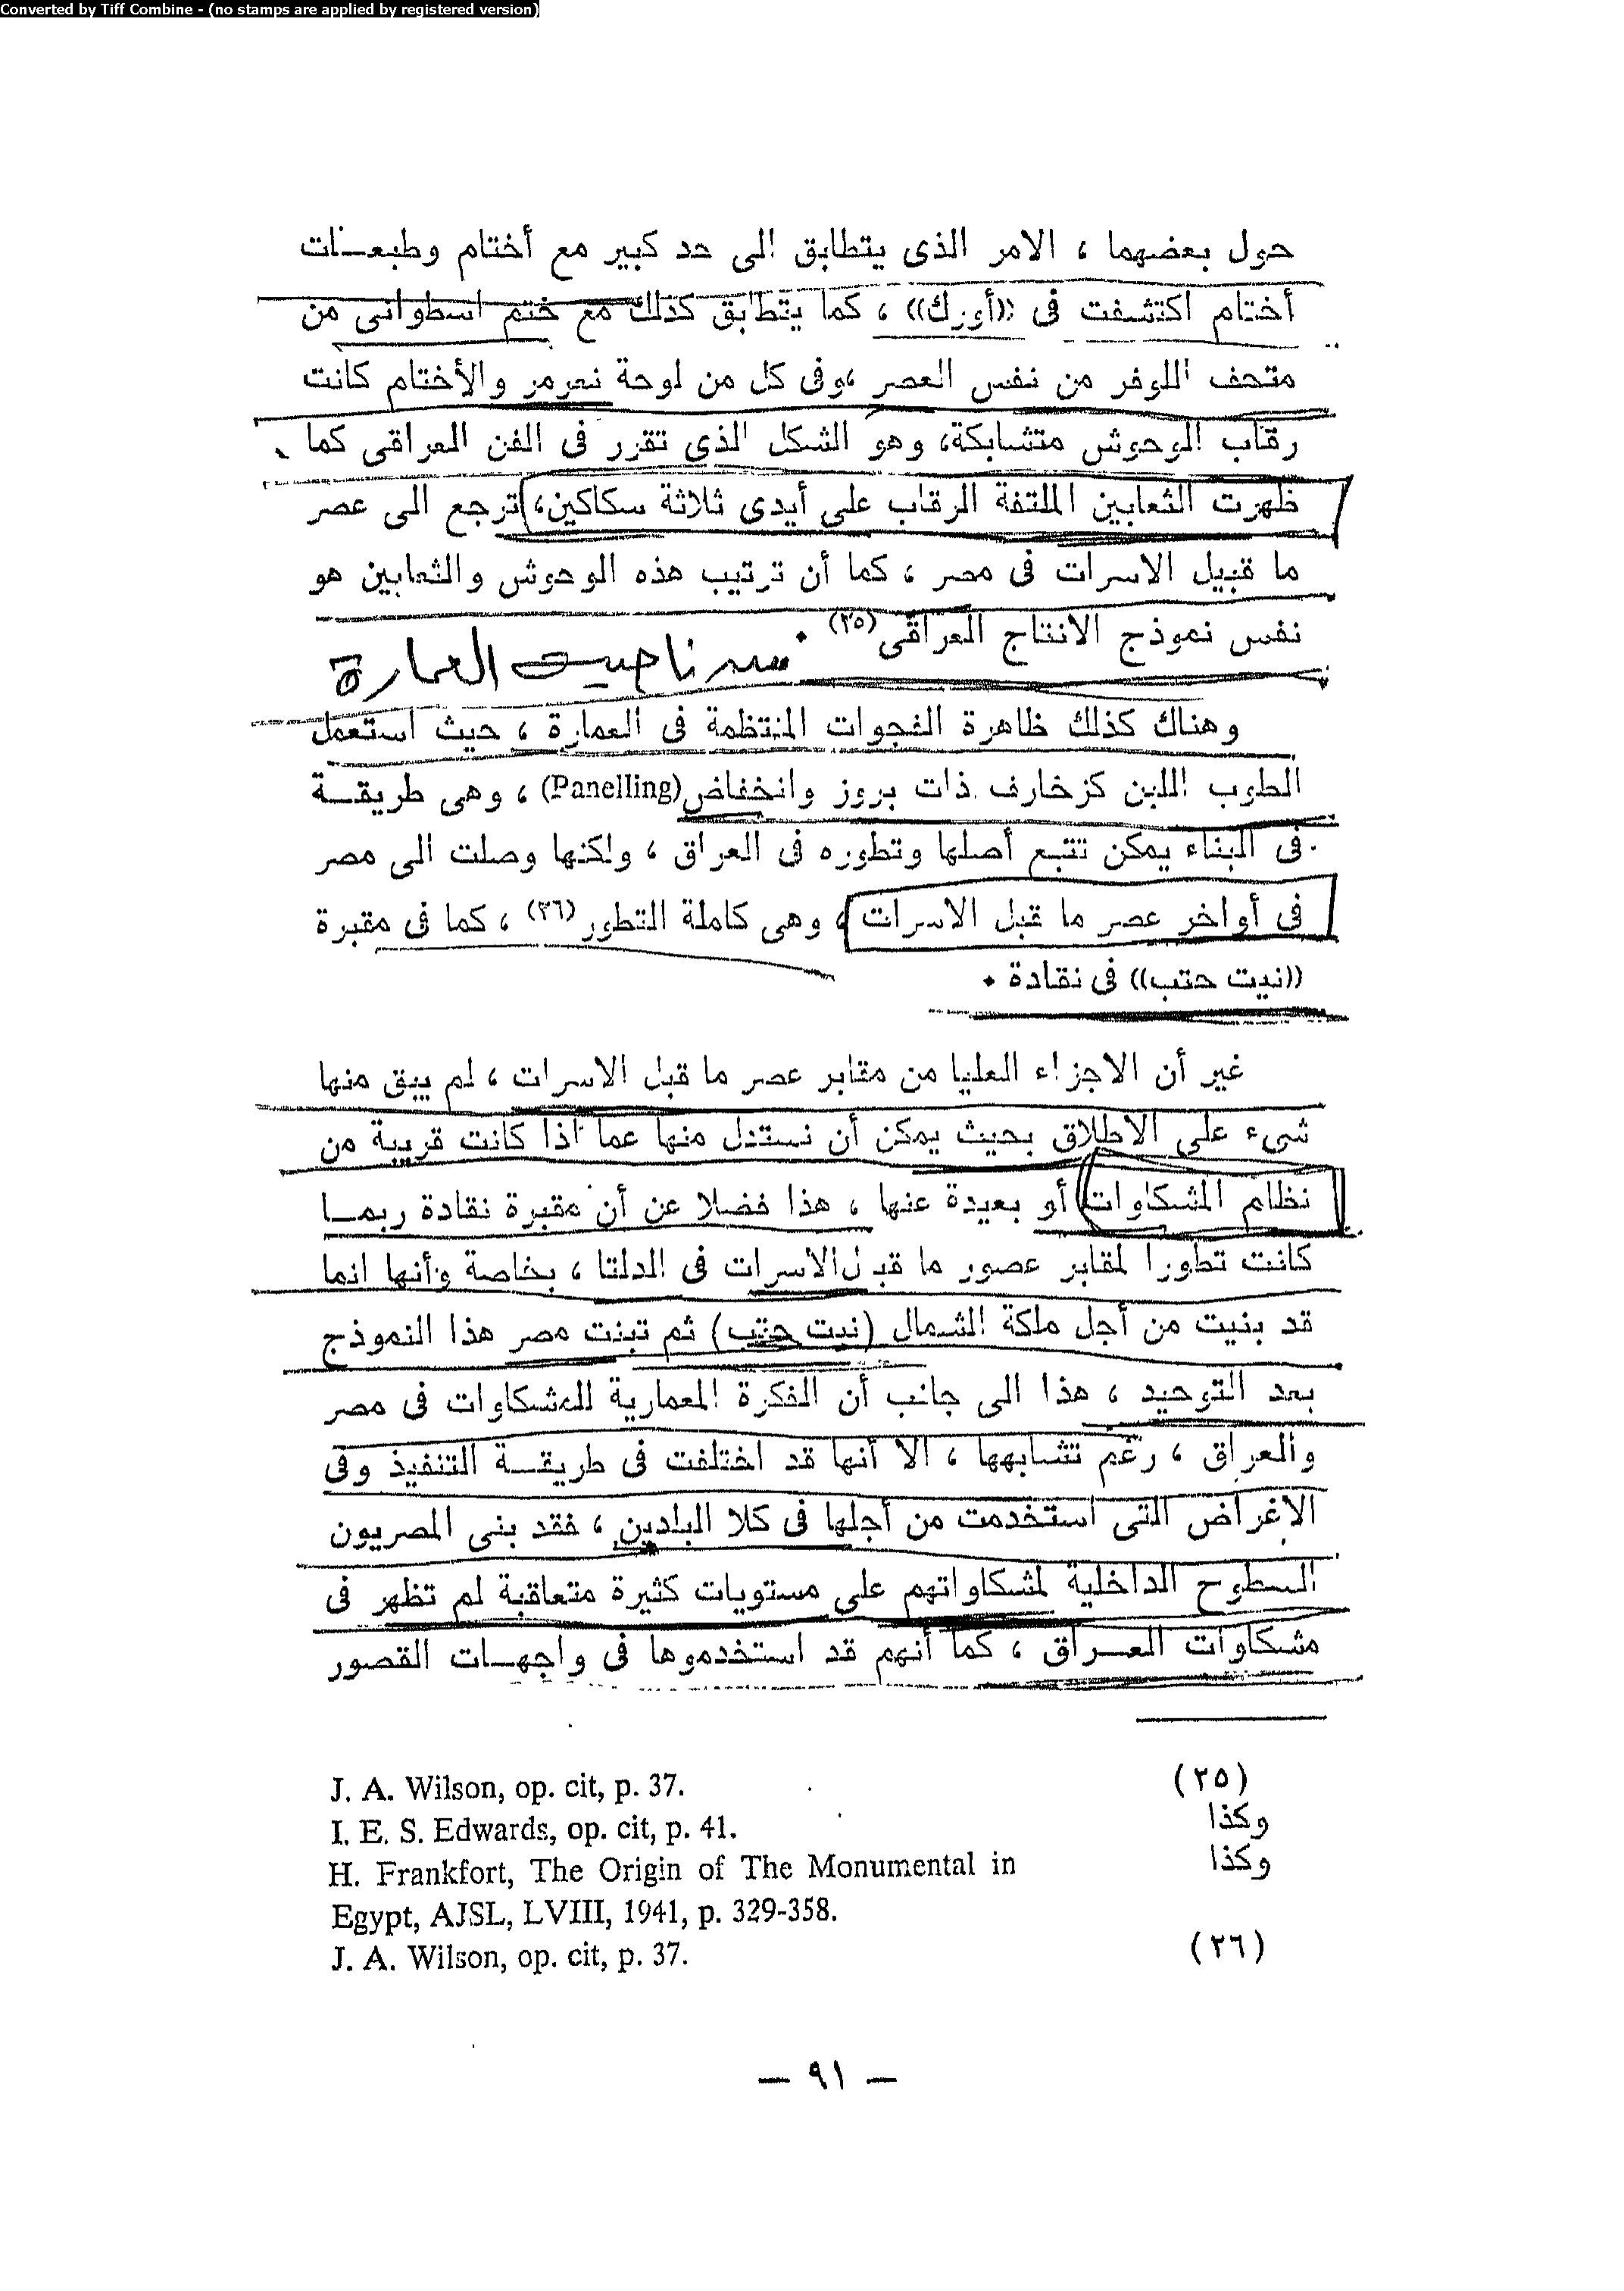 Converted by Tiff Combine - (no stamps are applied by registered version)
حول بعضهما ، الامر الذى يتطابق الى حد كبير مع أختام وطبعــات
أختام اكتشفت فى ((أورك)) ، كما يتطابق كذلك مع ختم اسطوانى من
متحف اللوفر من نفس العصر ،وفى كل من لوحة نعرمر والأختام كانت
رقاب الوحوش متشابكة، وهو الشكل الذى تقرر فى الفن العراقى كما
ظهرت الثعابين الملتفة الرقاب على أيدى ثلاثة سكاكين، ترجع الى عصر
ما قبيل الاسرات فى مصر ، كما أن ترتيب هذه الوحوش والثعابين هو
نفس نموذج الانتاج العراقى (٢٥) .
من ناحيت العمارة
وهناك كذلك ظاهرة الفجوات المنتظمة فى العمارة ، حيث استعمل
الطوب اللبن كزخارف ذات بروز وانخفاض (Panelling) ، وهى طريقــة
فى البناء يمكن تتبع أصلها وتطوره فى العراق ، ولكنها وصلت الى مصر
فى أواخر عصر ما قبل الاسرات ، وهى كاملة التطور (٢٦) ، كما فى مقبرة
((نيت حتب)) فى نقادة .
غير أن الاجزاء العليا من مقابر عصر ما قبل الاسرات ، لم يبق منها
شىء على الاطلاق بحيث يمكن أن نستدل منها عما اذا كانت قريبة من
نظام المشكاوات أو بعيدة عنها ، هذا فضلا عن أن مقبرة نقادة ربمــا
كانت تطورا لمقابر عصور ما قبل الاسرات فى الدلتا ، بخاصة وأنها انما
قد بنيت من أجل ملكة الشمال (نيت حتب) ثم تبنت مصر هذا النموذج
بعد التوحيد ، هذا الى جانب أن الفكرة المعمارية للمشكاوات فى مصر
والعراق ، رغم تشابهها ، الا أنها قد اختلفت فى طريقــة التنفيذ وفى
الاغراض التى استخدمت من أجلها فى كلا البلدين ، فقد بنى المصريون
السطوح الداخلية لمشكاواتهم على مستويات كثيرة متعاقبة لم تظهر فى
مشكاوات العــراق ، كما أنهم قد استخدموها فى واجهــات القصور
(٢٥) J. A. Wilson, op. cit, p. 37.
وكذا I. E. S. Edwards, op. cit, p. 41.
وكذا H. Frankfort, The Origin of The Monumental in
Egypt, AJSL, LVIII, 1941, p. 329-358.
(٢٦) J. A. Wilson, op. cit, p. 37.
— ٩١ —